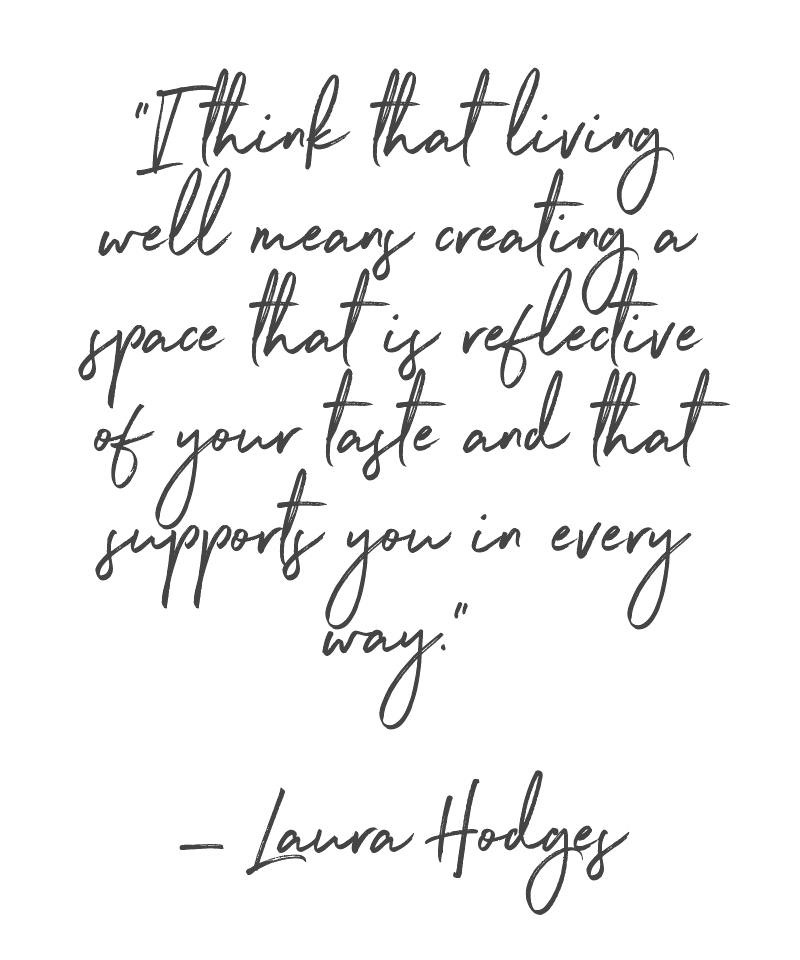 "I think that living
well means creating a
space that is reflective
of your taste and that
supports you in every
way."
– Laura Hodges